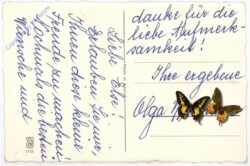 Liebe Edi!
Erlauben Sie mir,
Ihnen diese kleine
Freude zu machen!
Nochmals die besten
Wünsche und
danke für die
liebe Aufmerk-
samkeit!
Ihre ergebene
Olga